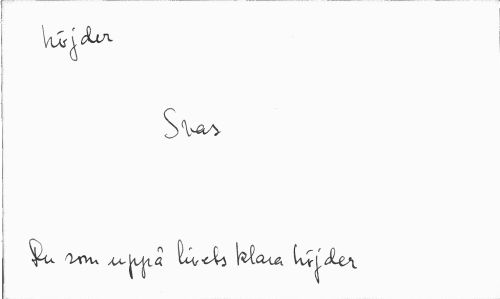 höjder
Svas
Du som uppå livets klara höjder